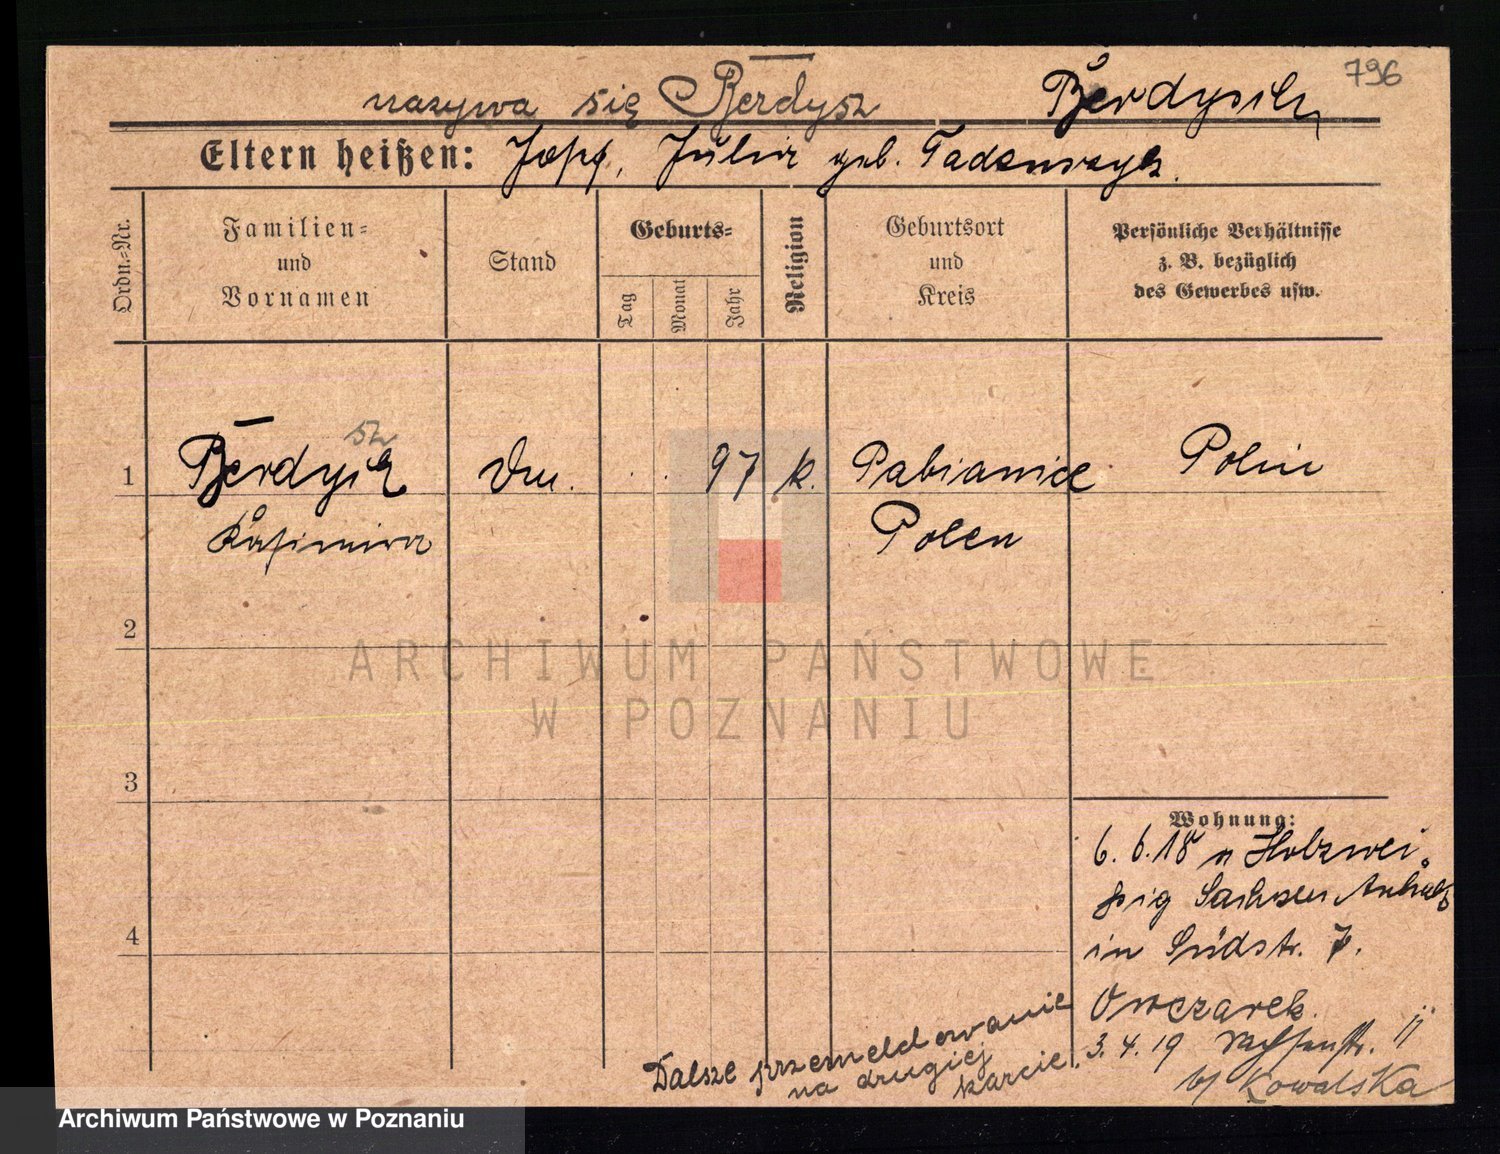 796
nazywa się Berdysz Berdysch
Eltern heißen: Josef, Julia geb.
Ordn.-Nr.
Familien-
und
Vornamen
Stand
Geburts-
Tag
Monat
Jahr
Religion
Geburtsort
und
Kreis
Persönliche Verhältnisse
z. B. bezüglich
des Gewerbes usw.
sz
1 Berdych 97 k. Pabianice Polin
Kasimira Polen
2
3
4
Wohnung:
6. 6. 18 n Holzwei-
ßig Sachsen Anhalt
in Südstr. 7.
Owczarek.
3. 4. 19
b/ Kowalska
Dalsze przemeldowanie
na drugiej
karcie.
ARCHIWUM PAŃSTWOWE
W POZNANIU
Archiwum Państwowe w Poznaniu